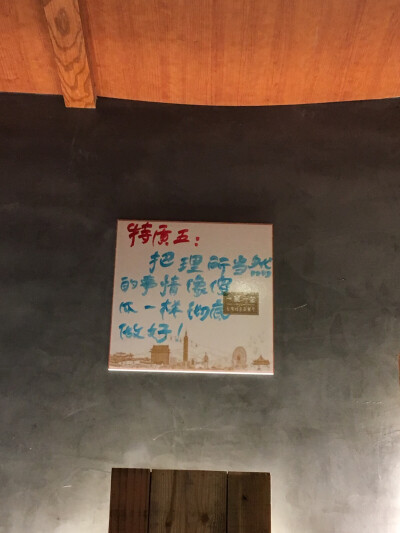 特质五：
把理所当然
的事情像傻
瓜一样彻底
做好！